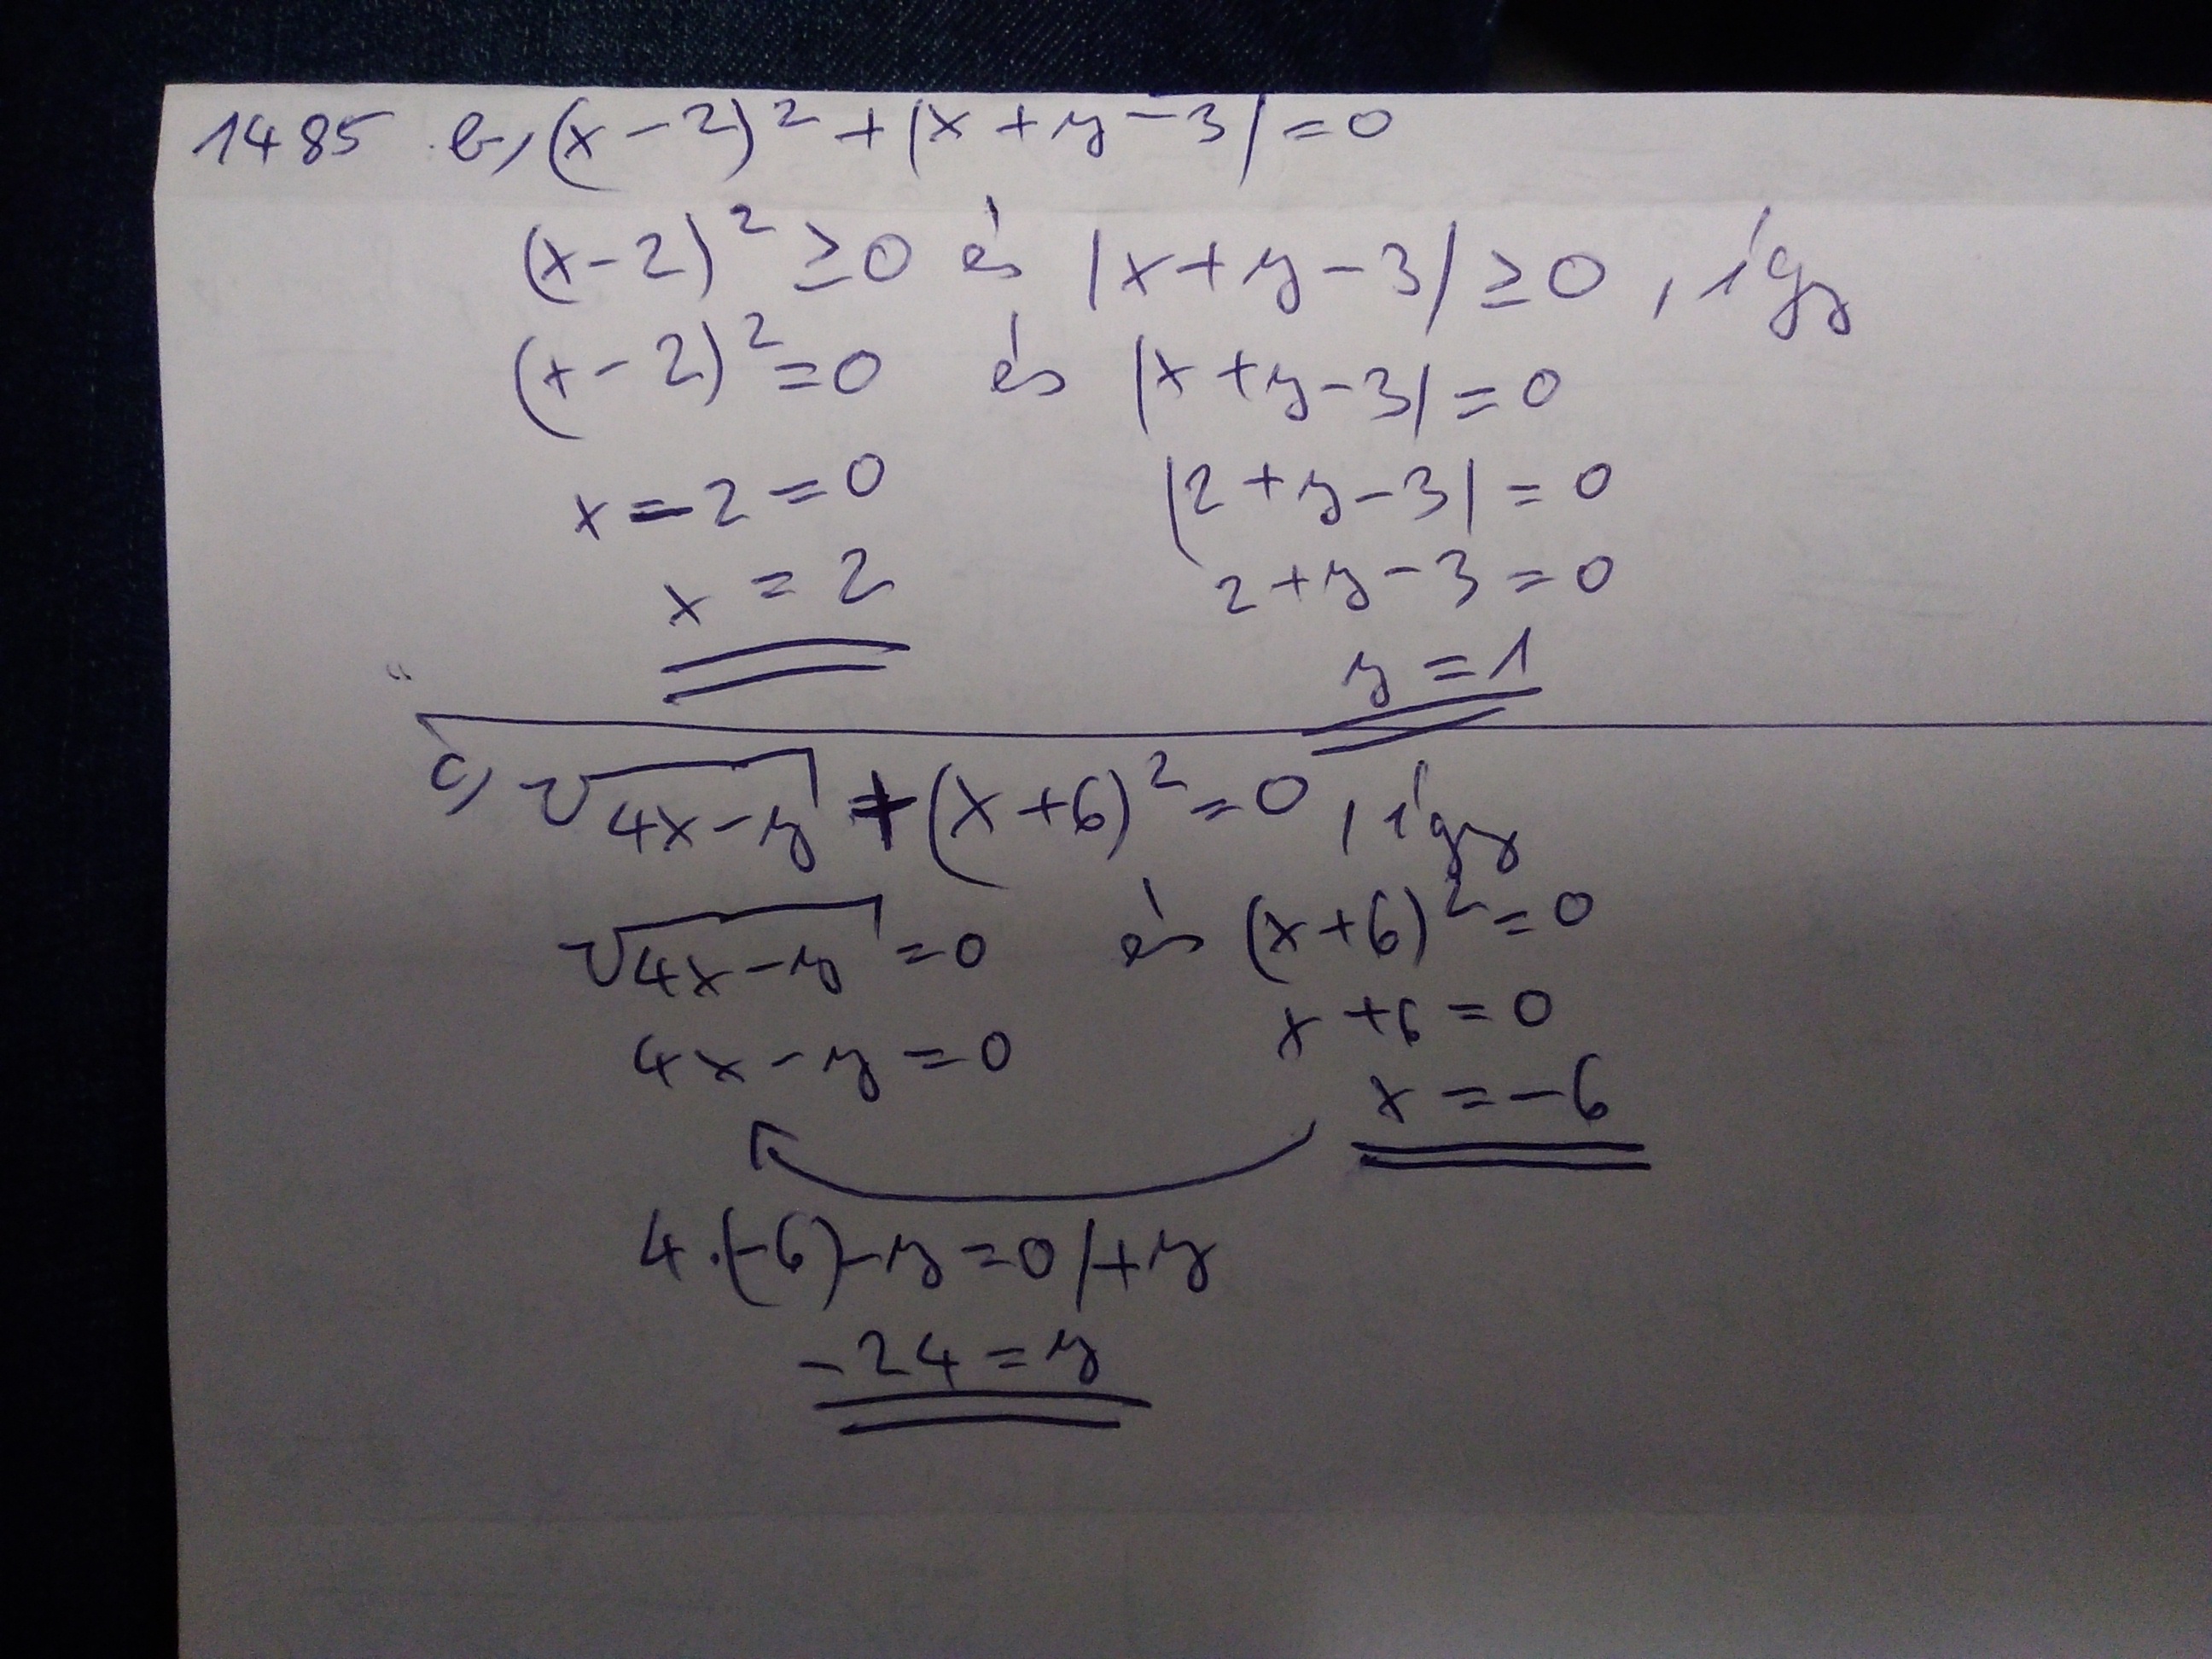 1485. b, (x-2)² + |x+y-3| = 0
(x-2)² ≥ 0 és |x+y-3| ≥ 0, így
(x-2)² = 0 és |x+y-3| = 0
x-2 = 0 |2+y-3| = 0
x = 2 2+y-3 = 0
y = 1
c, √(4x-y) + (x+6)² = 0, így
√(4x-y) = 0 és (x+6)² = 0
4x-y = 0 x+6 = 0
x = -6
4·(-6)-y = 0 /+y
-24 = y